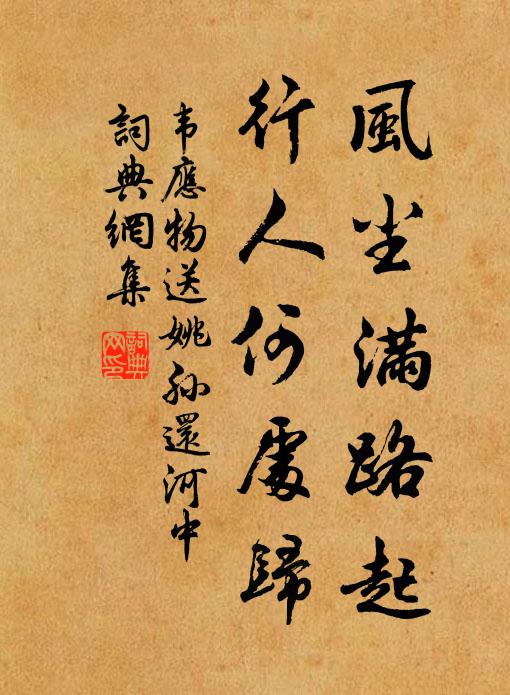 風塵滿路起
行人何處歸
韦應物送姚孫還河中
詞典網集
詞典網印